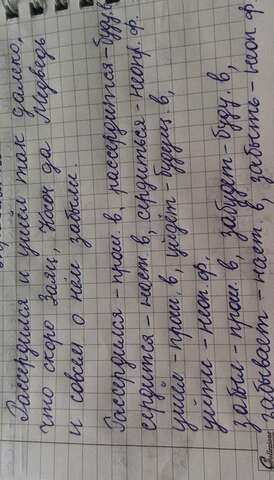 Рассердился и ушёл так далеко,
что скоро Заяц, Коза да Медведь
и совсем о нём забыли.
Рассердился - прош. в, рассердится - буд. в
сердится - наст в, сердиться - неопр. ф.
ушёл - прош. в, уйдёт - будущ в,
уйти - неоп. ф.
забыл - прош. в, забудет - буду. в,
забывает - наст. в, забыть - неоп ф.